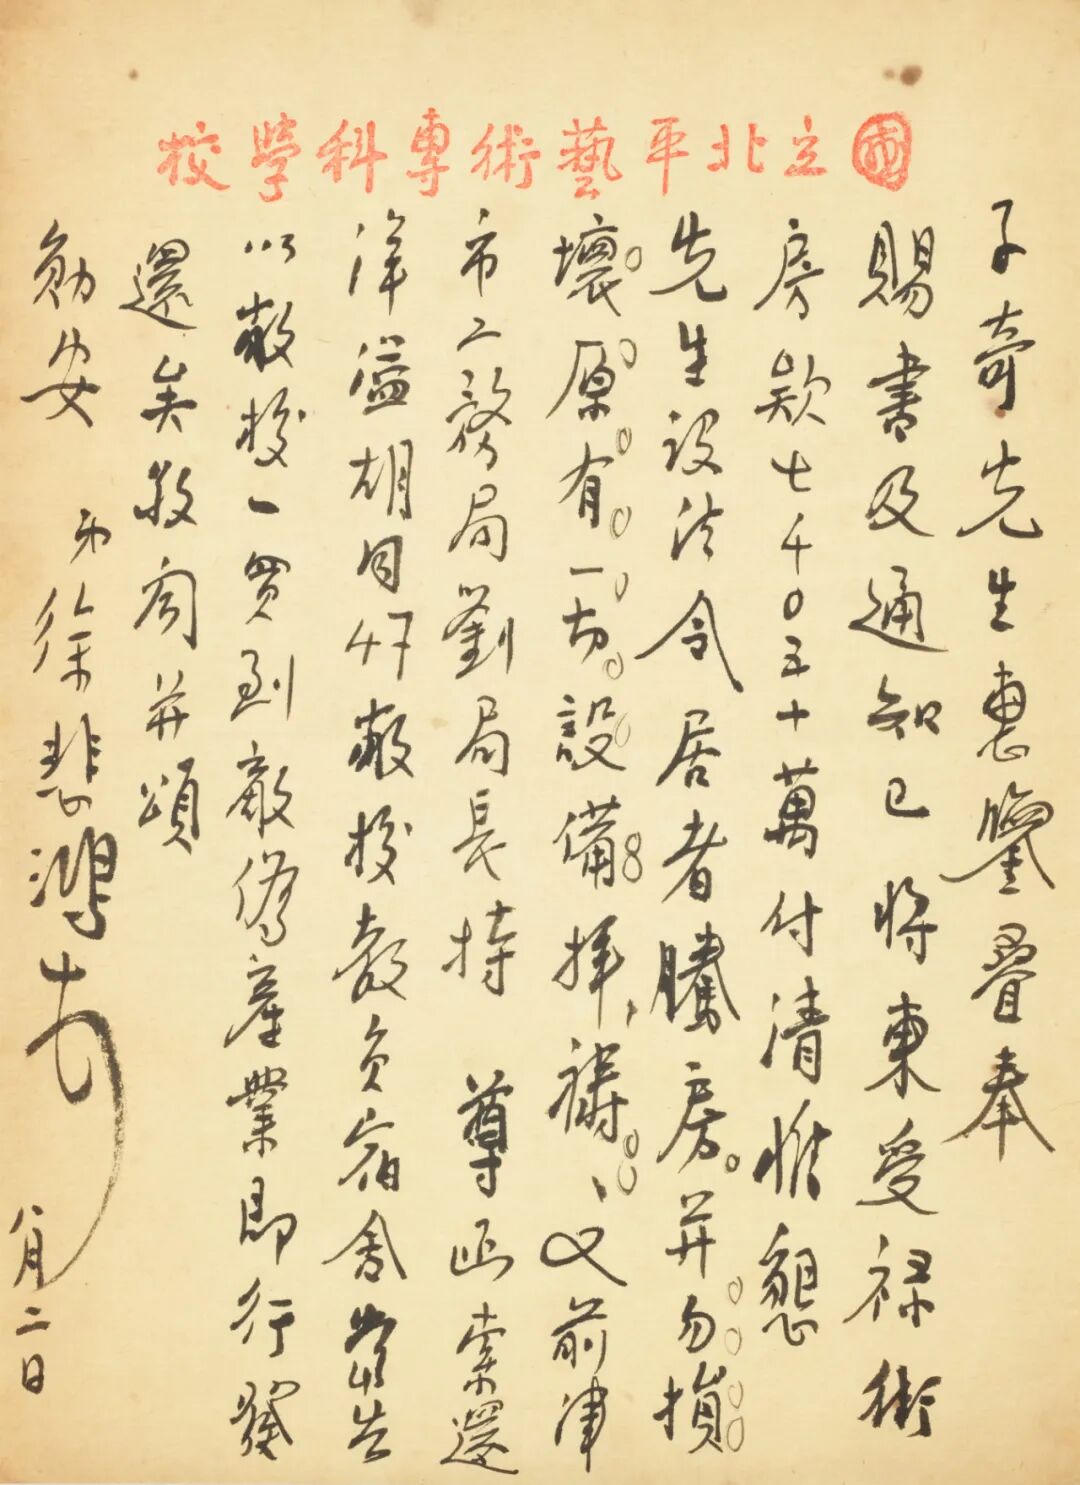 國立北平藝術專科學校
子奇先生惠鑒疊奉
賜書及通知已將東受祿街
房款七千〇五十萬付清惟懇
先生設法令居者騰房并勿損
壞原有一切設備拜禱、又前津
市工務局劉局長持 尊函索還
洋溢胡同47敝校教員宿舍當告
以敝校一買到敵偽產業即行發
還矣敬布并頌
勛安 弟徐悲鴻頓
八月二日